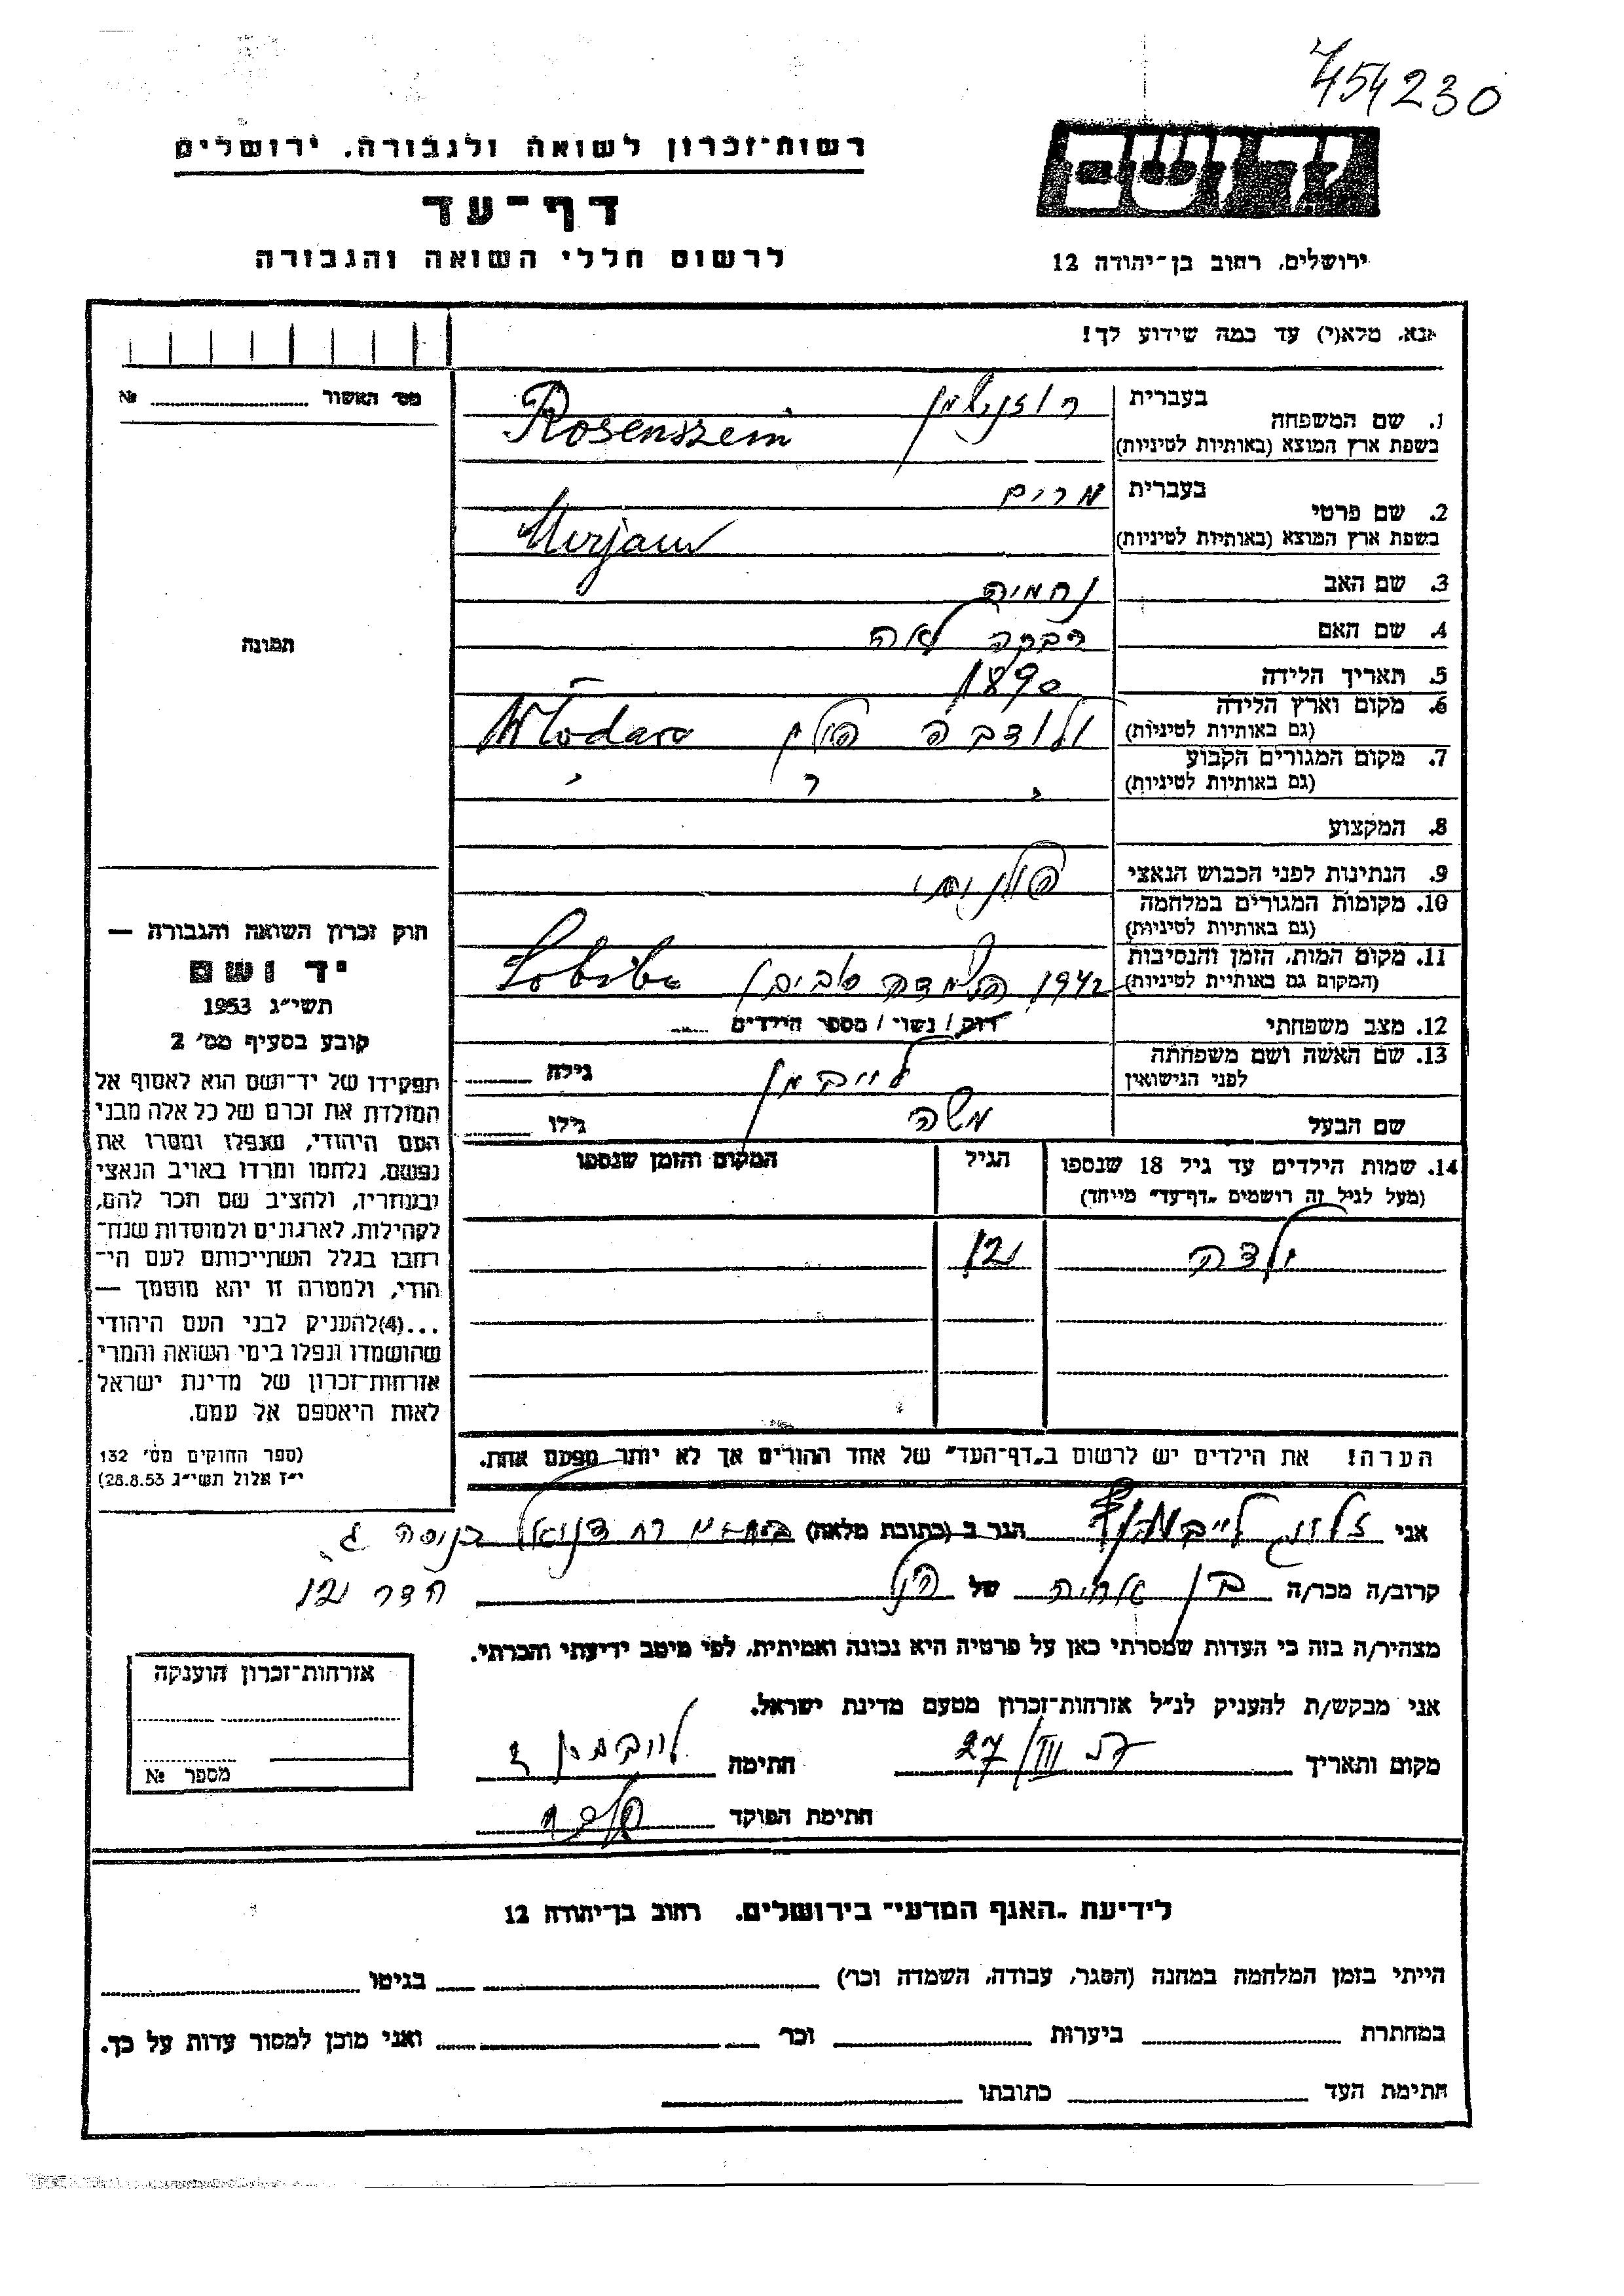 454230
רשות־זכרון לשואה ולגבורה, ירושלים
דף־עד
לרשום חללי השואה והגבורה
יד ושם
ירושלים, רחוב בן־יהודה 12
אנא, מלא(י) עד כמה שידוע לך!
מס׳ האשור № 
1. שם המשפחה
בעברית
בשפת ארץ המוצא (באותיות לטיניות)
Rosenszein
2. שם פרטי
בעברית מרים
בשפת ארץ המוצא (באותיות לטיניות)
Mirjam
3. שם האב נחמיה
4. שם האם רבקה לאה
5. תאריך הלידה 1890
6. מקום וארץ הלידה
(גם באותיות לטיניות)
ולודבה פולין Włodawa
7. מקום המגורים הקבוע
(גם באותיות לטיניות)
8. המקצוע
9. הנתינות לפני הכבוש הנאצי פולנית
10. מקומות המגורים במלחמה
(גם באותיות לטיניות)
11. מקום המות, הזמן והנסיבות
(המקום גם באותיות לטיניות)
1942 השמדה סביבור Sobibor
12. מצב משפחתי רוק / נשוי / מספר הילדים
13. שם האשה ושם משפחתה
לפני הנישואין
לייבמן גילה
שם הבעל משה גילו
14. שמות הילדים עד גיל 18 שנספו
(מעל לגיל זה רושמים „דף־עד״ מיוחד)
הגיל
המקום והזמן שנספו
ילדה 12
הערה! את הילדים יש לרשום ב„דף־העד״ של אחד ההורים אך לא יותר מפעם אחת.
תמונה
חוק זכרון השואה והגבורה —
יד ושם
תשי״ג 1953
קובע בסעיף מס׳ 2
תפקידו של יד־ושם הוא לאסוף אל
המולדת את זכרם של כל אלה מבני
העם היהודי, שנפלו ומסרו את
נפשם, נלחמו ומרדו באויב הנאצי
ובעוזריו, ולהציב שם וזכר להם,
לקהילות, לארגונים ולמוסדות שנח־
רבו בגלל השתייכותם לעם הי־
הודי, ולמטרה זו יהא מוסמך —
...(4)להעניק לבני העם היהודי
שהושמדו ונפלו בימי השואה והמרי
אזרחות־זכרון של מדינת ישראל
לאות היאספם אל עמם.
(ספר החוקים מס׳ 132
י״ז אלול תשי״ג 28.8.53)
אני זליג לייבמן הגר ב (כתובת מלאה)
קרוב/ה מכר/ה בן של הנ״ל
מצהיר/ה בזה כי העדות שמסרתי כאן על פרטיה היא נכונה ואמיתית, לפי מיטב ידיעתי והכרתי.
אני מבקש/ת להעניק לנ״ל אזרחות־זכרון מטעם מדינת ישראל.
מקום ותאריך 27/III חתימה לייבמן ז
חתימת הפוקד
אזרחות־זכרון הוענקה
מספר №
לידיעת „האגף המדעי״ בירושלים, רחוב בן־יהודה 12
הייתי בזמן המלחמה במחנה (הסגר, עבודה, השמדה וכר׳) בגיטו
במחתרת ביערות וכר׳ ואני מוכן למסור עדות על כך.
חתימת העד כתובתו